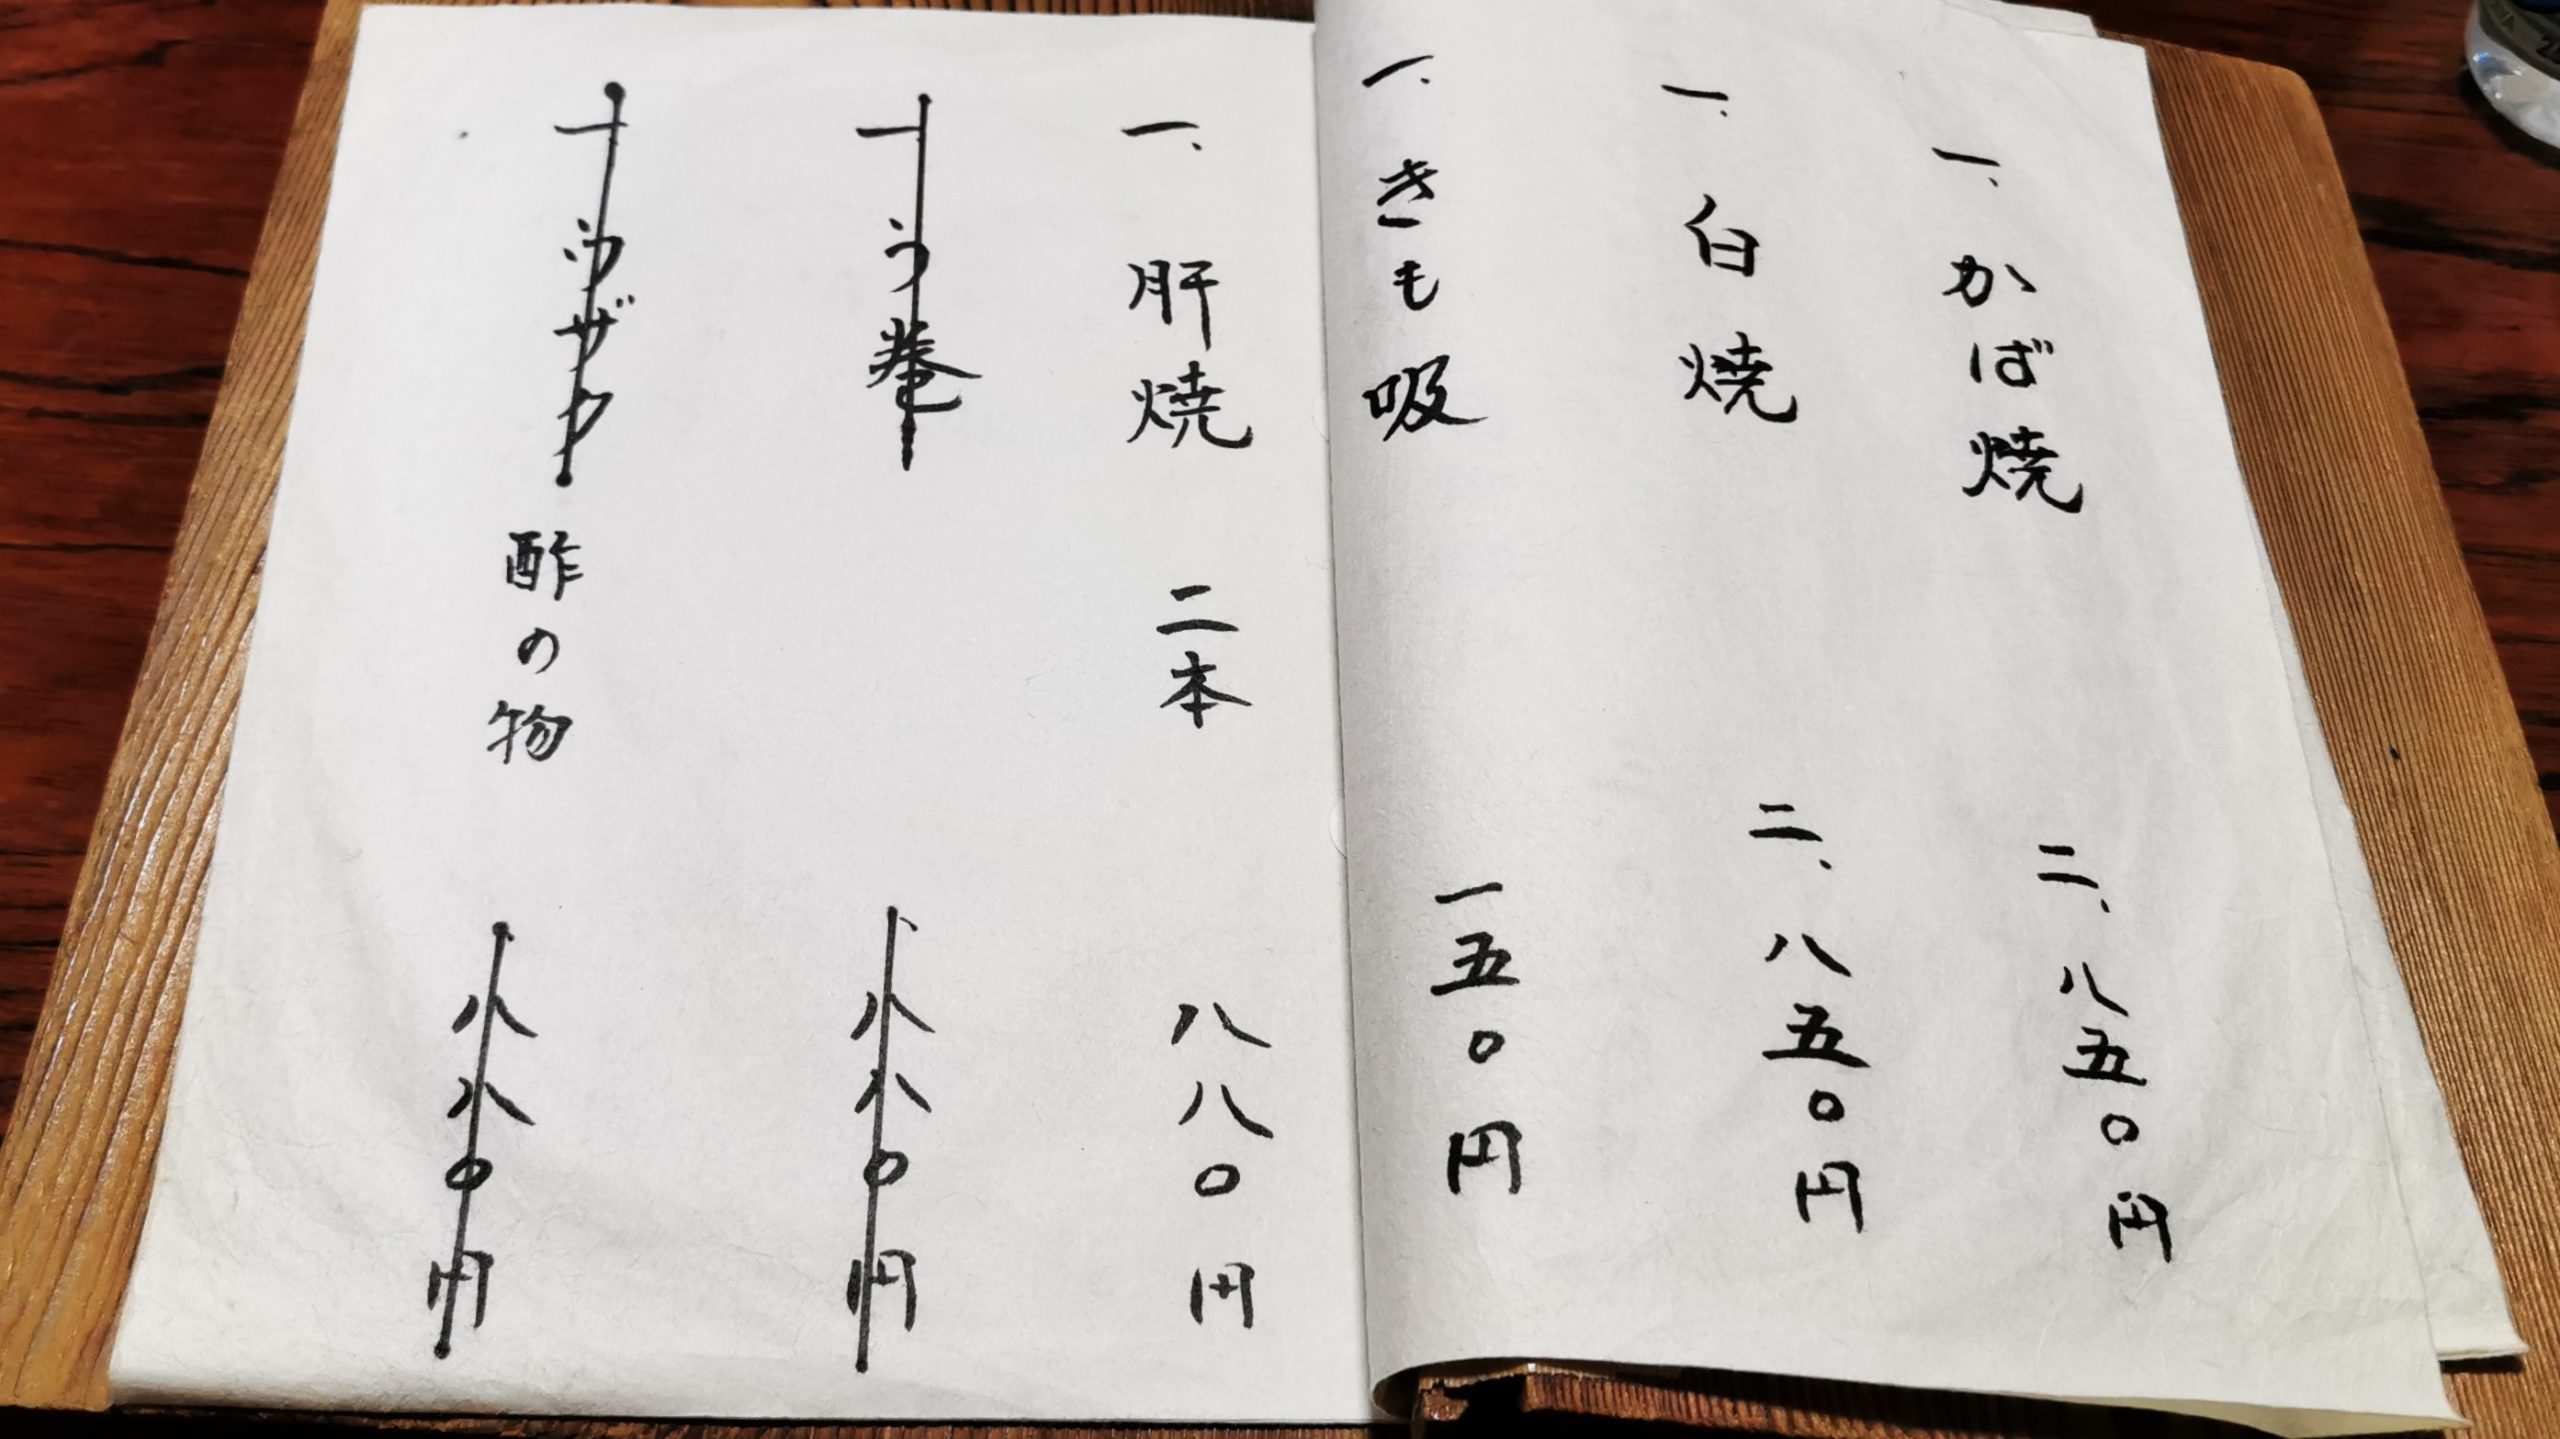 一、かば焼 二、八五〇円
一、白焼 二、八五〇円
一、きも吸 一五〇円
一、肝焼 二本 八八〇円
一、う巻 八八〇円
一、ウザク 酢の物 八八〇円